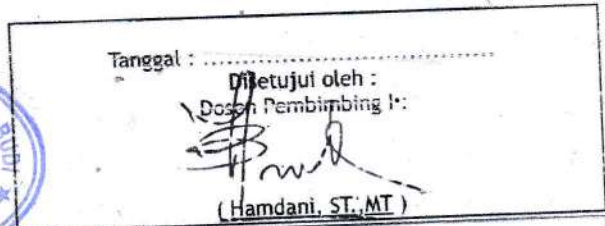 Tanggal : ......................................
Disetujui oleh :
Dosen Pembimbing I :
(Hamdani, ST.,MT )
BUDI